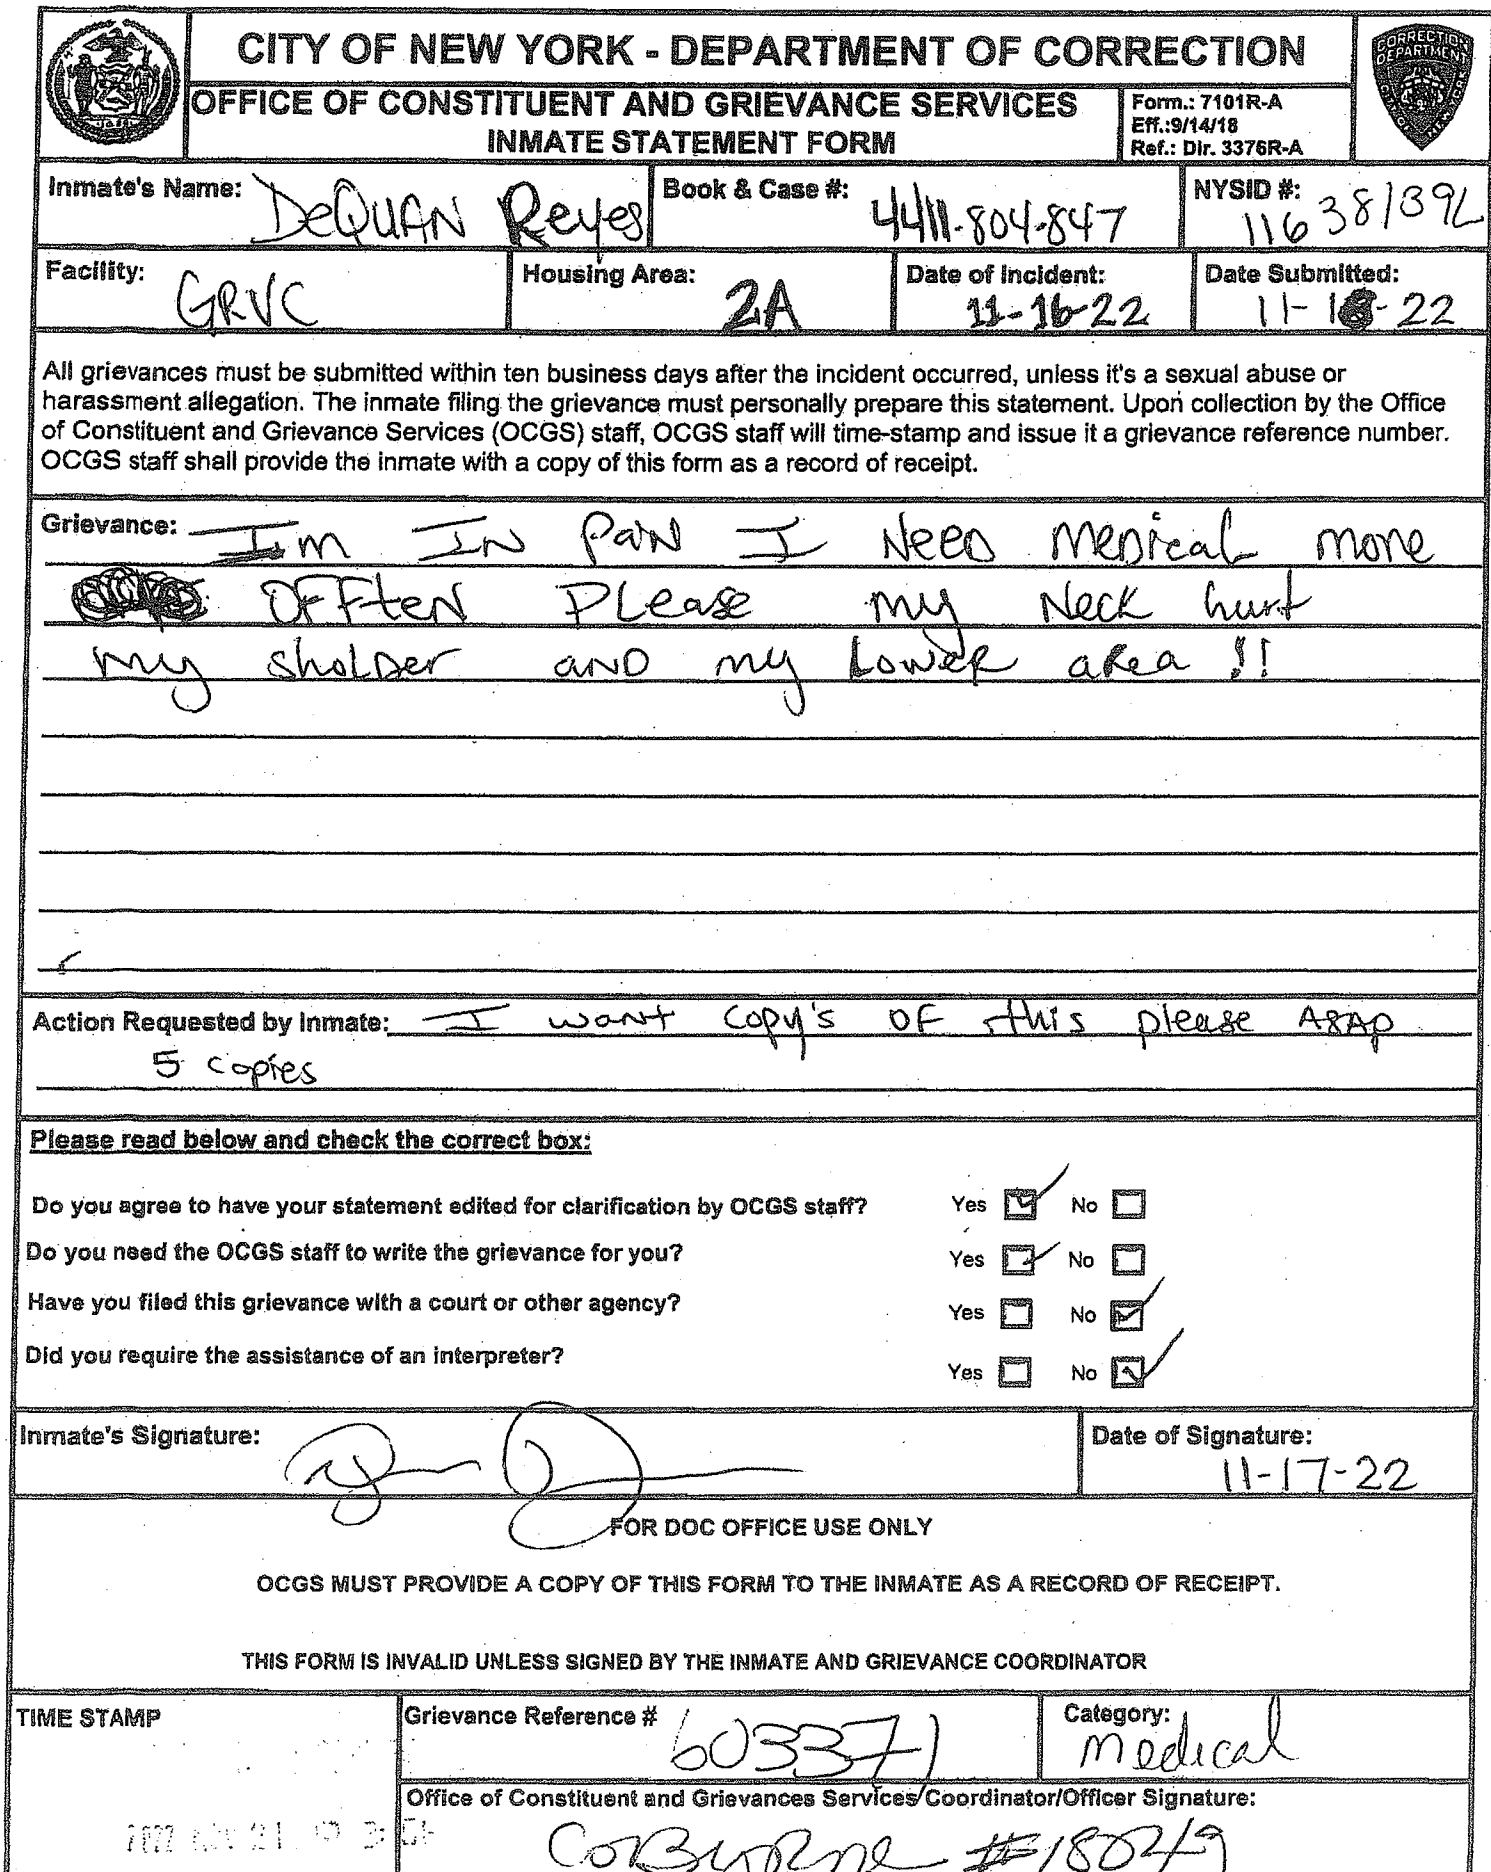 CITY OF NEW YORK - DEPARTMENT OF CORRECTION
OFFICE OF CONSTITUENT AND GRIEVANCE SERVICES
INMATE STATEMENT FORM
Form.: 7101R-A
Eff.:9/14/18
Ref.: Dir. 3376R-A
CORRECTION
DEPARTMENT
CITY OF NEW YORK
Inmate's Name: DeQUAN Reyes
Book & Case #: 4411-804-847
NYSID #: 11638139L
Facility: GRVC
Housing Area: 2A
Date of Incident: 11-16-22
Date Submitted: 11-18-22
All grievances must be submitted within ten business days after the incident occurred, unless it's a sexual abuse or
harassment allegation. The inmate filing the grievance must personally prepare this statement. Upon collection by the Office
of Constituent and Grievance Services (OCGS) staff, OCGS staff will time-stamp and issue it a grievance reference number.
OCGS staff shall provide the inmate with a copy of this form as a record of receipt.
Grievance: Im IN PaiN I NeeD MeDical more
OFFteN PLease my Neck hurt
my sholDer aND my Lower aRea !!
Action Requested by Inmate: I want copy's OF this please ASAP
5 copies
Please read below and check the correct box:
Do you agree to have your statement edited for clarification by OCGS staff? Yes No
Do you need the OCGS staff to write the grievance for you? Yes No
Have you filed this grievance with a court or other agency? Yes No
Did you require the assistance of an interpreter? Yes No
Inmate's Signature:
Date of Signature: 11-17-22
FOR DOC OFFICE USE ONLY
OCGS MUST PROVIDE A COPY OF THIS FORM TO THE INMATE AS A RECORD OF RECEIPT.
THIS FORM IS INVALID UNLESS SIGNED BY THE INMATE AND GRIEVANCE COORDINATOR
TIME STAMP
Grievance Reference # 603371
Category: medical
Office of Constituent and Grievances Services/Coordinator/Officer Signature:
#18049